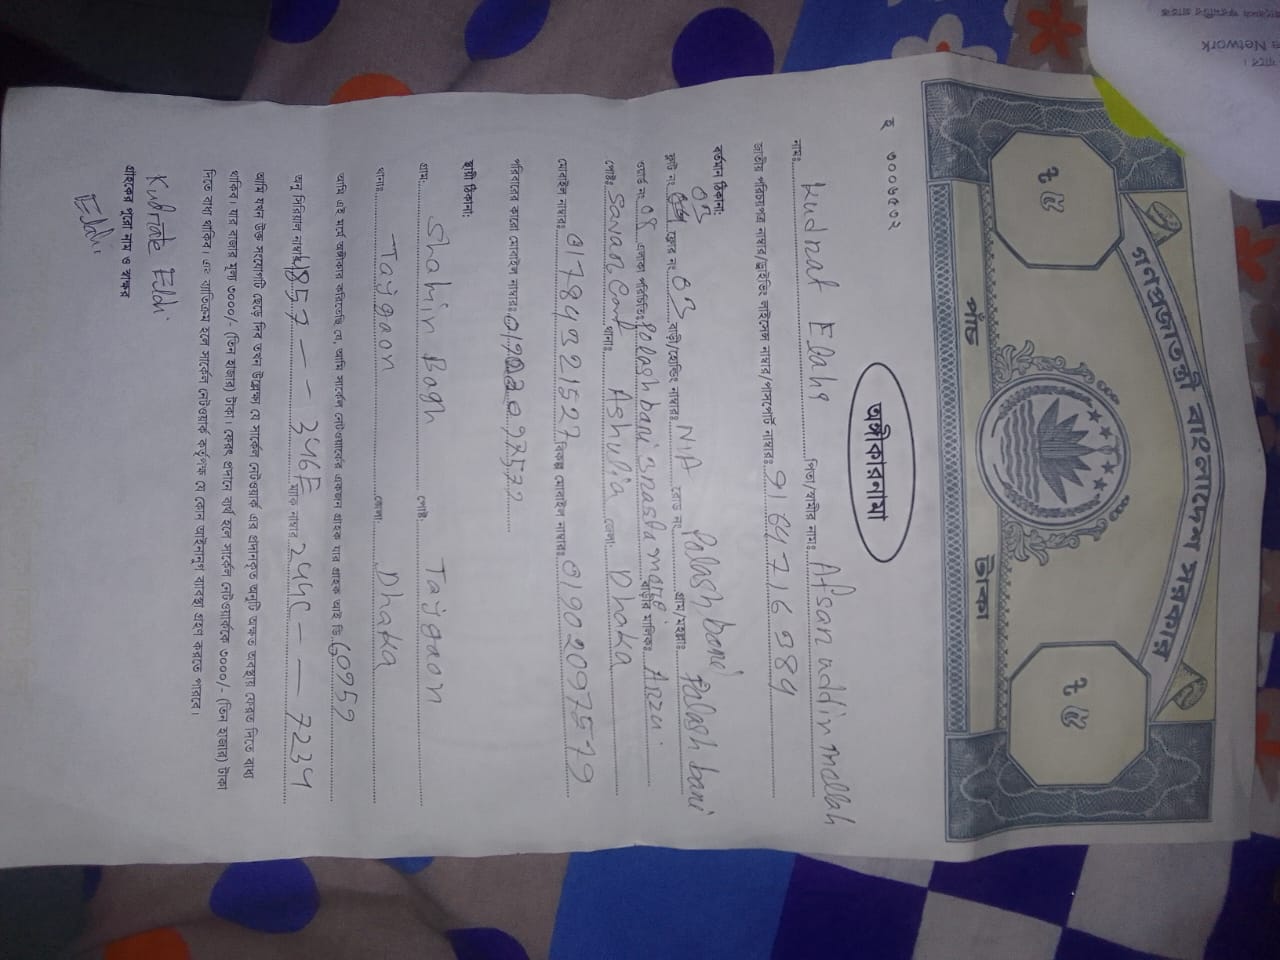 গণপ্রজাতন্ত্রী বাংলাদেশ সরকার
৫ ৳ ৫ ৳
পাঁচ টাকা
হ ৩০০৬৫৩২
অঙ্গীকারনামা
নাম: Kudrat Elahi পিতা/স্বামীর নাম: Afsan uddin mollah
জাতীয় পরিচয়পত্র নাম্বার/ড্রাইভিং লাইসেন্স নাম্বার/পাসপোর্ট নাম্বার: 9164716384
বর্তমান ঠিকানা:
ফ্লাট নং 03 ফ্লোর নং 03 বাড়ী/হোল্ডিং নাম্বার: N/A রোড নং Palash bari গ্রাম/মহল্লা: Palash bari
ওয়ার্ড নং 08 এলাকা পরিচিতি: Polash bari বাড়ীর মালিক: Arzu
পোষ্ট: Savar Cant থানা: Ashulia জেলা: Dhaka
মোবাইল নাম্বার: 01784321527 বিকল্প মোবাইল নাম্বার: 01902097579
পরিবারের কারো মোবাইল নাম্বার:
স্থায়ী ঠিকানা:
গ্রাম: Shahin Bagh পোষ্ট: Tajgaon
থানা: Tajgaon জেলা: Dhaka
আমি এই মর্মে অঙ্গীকার করিতেছি যে, আমি সার্কেল নেটওয়ার্কের একজন গ্রাহক যার গ্রাহক আই ডি 60952
অনু সিরিয়াল নাম্বার 4857 - - 346F ম্যাক নাম্বার 244C - - 7234
আমি যখন উক্ত সংযোগটি ছেড়ে দিব তখন উল্লেখ্য যে সার্কেল নেটওয়ার্ক এর প্রদানকৃত অনুটি অক্ষত অবস্থায় ফেরত দিতে বাধ্য
থাকিব। যার বাজার মূল্য ৩০০০/- (তিন হাজার) টাকা। ফেরৎ প্রদানে ব্যর্থ হলে সার্কেল নেটওয়ার্ককে ৩০০০/- (তিন হাজার) টাকা
দিতে বাধ্য থাকিব। এর ব্যতিক্রম হলে সার্কেল নেটওয়ার্ক কর্তৃপক্ষ যে কোন আইনানুগ ব্যবস্থা গ্রহণ করতে পারবে।
Kudrate Elahi
গ্রাহকের পুরো নাম ও স্বাক্ষর
Elahi
Network